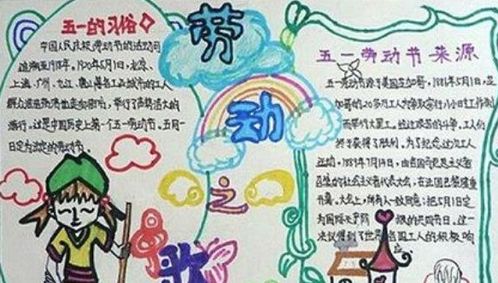 五一的习俗
中国人民庆祝劳动节的活动可
追溯至1918年。1920年5月1日,北京、
上海、广州、九江、唐山等各工业城市的工人
群众浩浩荡荡地走向街市,举行了声势浩大的
游行,这是中国历史上第一个五一劳动节,五月一
日定为法定的劳动节。
劳
动
之
歌
五一劳动节来源
五一劳动节源于美国芝加哥,1886年5月1日,芝
加哥的20多万工人为争取实行八小时工作制
而举行大罢工,经过艰苦的斗争,工人们
终于获得了胜利。为了纪念这次工人
运动,1889年7月14日,由各国马克思主义者
召集的社会主义者代表大会,在法国巴黎隆重
开幕。大会上,与会人一致同意,把5月1日定
为国际无产阶级的共同节日。这一
决议得到了世界各国工人的积极响